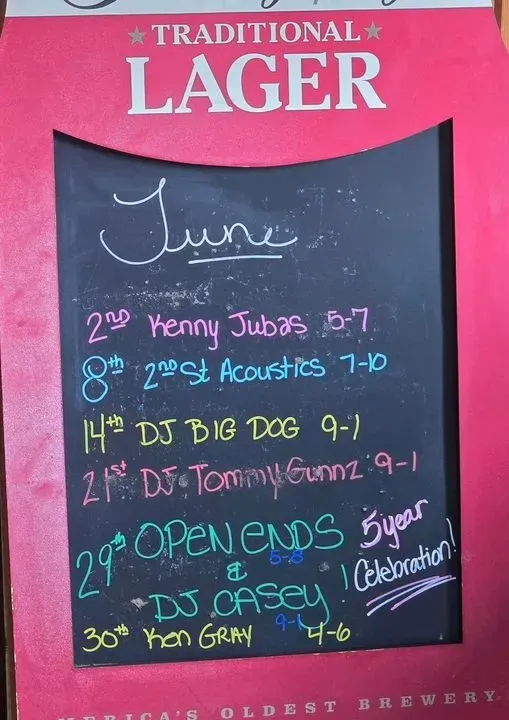 TRADITIONAL
LAGER
June
2nd Kenny Jubas 5-7
8th 2nd St Acoustics 7-10
14th DJ BIG DOG 9-1
21st DJ TommyGunnz 9-1
29th OPEN ENDS 5-8
& DJ CASEY 9-1
! 5 year Celebration!
30th Ken GRAY 4-6
AMERICA'S OLDEST BREWERY